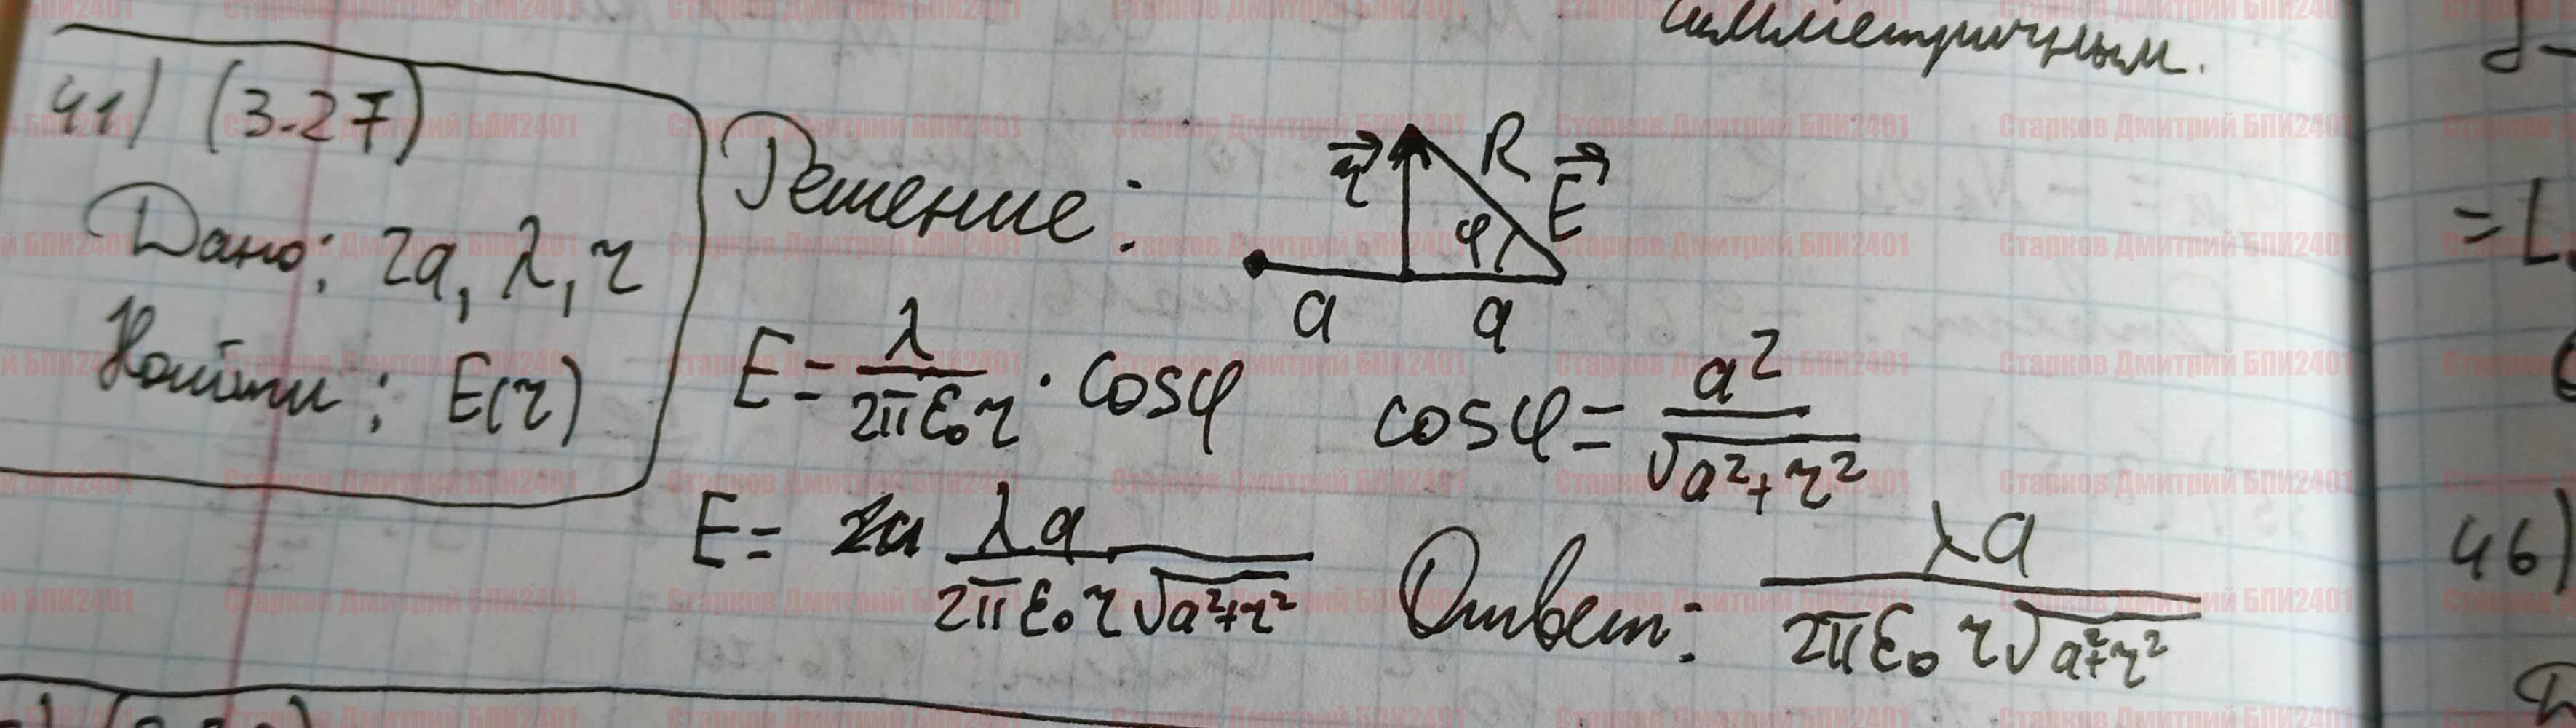 симметричным.
41) (3.27)
Дано: 2a, λ, r
Найти: E(r)
Решение:
r R E
φ
a a
E = λ / 2πε₀r · cosφ cosφ = a² / √a²+r²
E = λa / 2πε₀r√a²+r² Ответ: λa / 2πε₀r√a²+r²
= L
46)
Старков Дмитрий БПИ2401